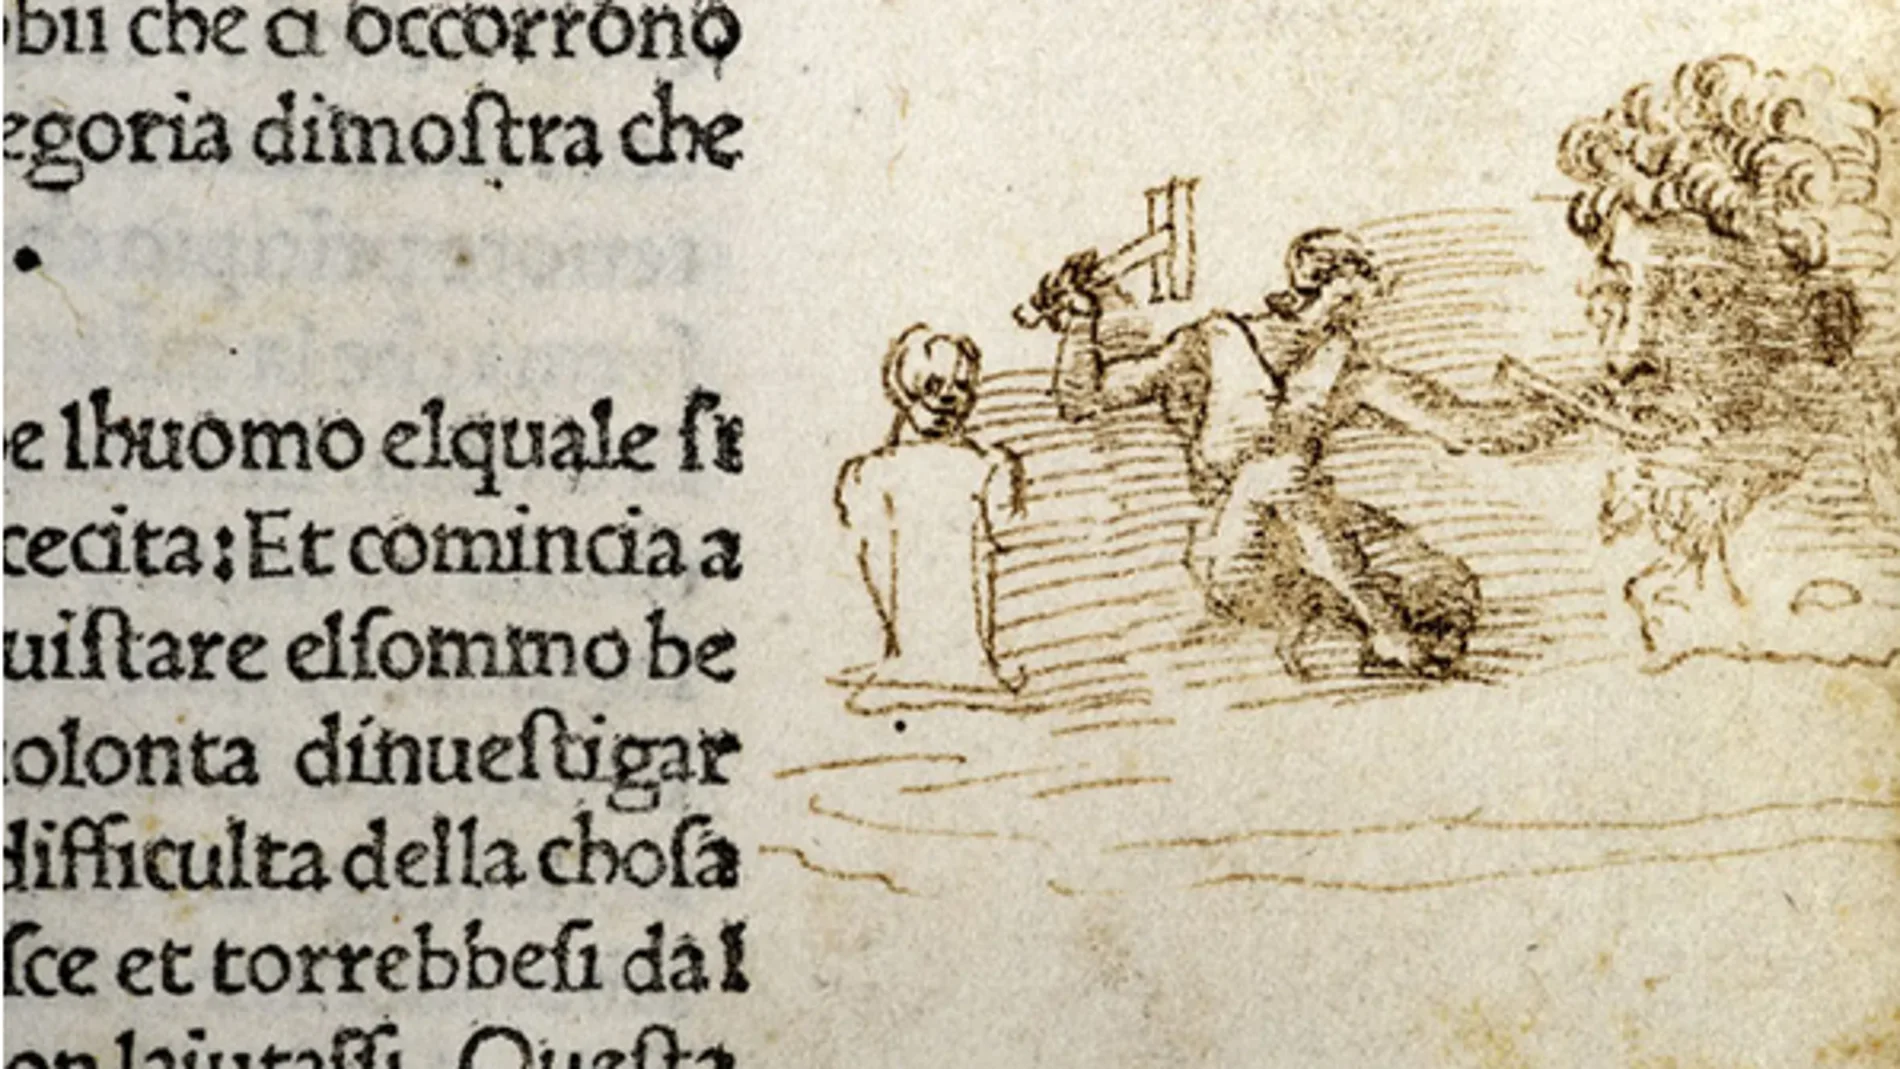 bii che ci occorrono
egoria dimoſtra che
e lhuomo elquale ſi
cecita: Et comincia a
uiſtare elſommo be
olonta dinueſtigar
difficulta della choſa
ſce et torrebbeſi dal
on laiutaſſi Queſta